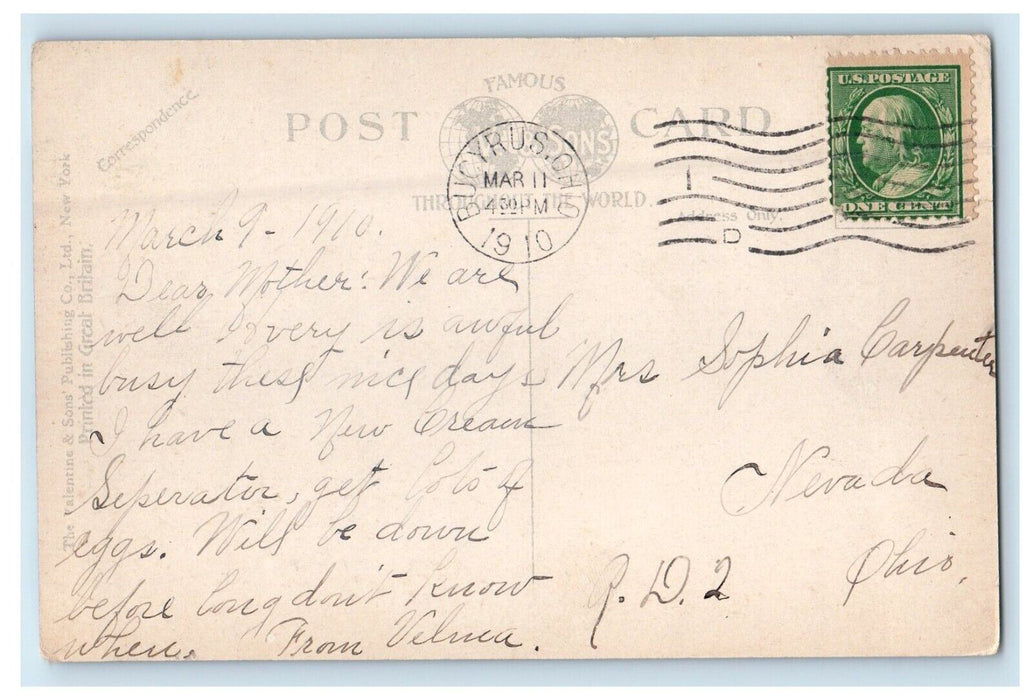 FAMOUS
POST CARD
SONS
THROUGHOUT THE WORLD.
Correspondence.
Address Only.
The Valentine & Sons' Publishing Co., Ltd., New York
Printed in Great Britain.
U.S. POSTAGE
ONE CENT
BUCYRUS, OHIO
MAR 11
4 30 PM
1910
1
D
March 9 - 1910.
Dear Mother: We are
well & very is awful
busy these nice days
I have a New Cream
Seperator, get lots of
eggs. Will be down
before long don't know
when. From Velma.
Mrs Sophia Carpenter
Nevada
Ohio.
R. D. 2